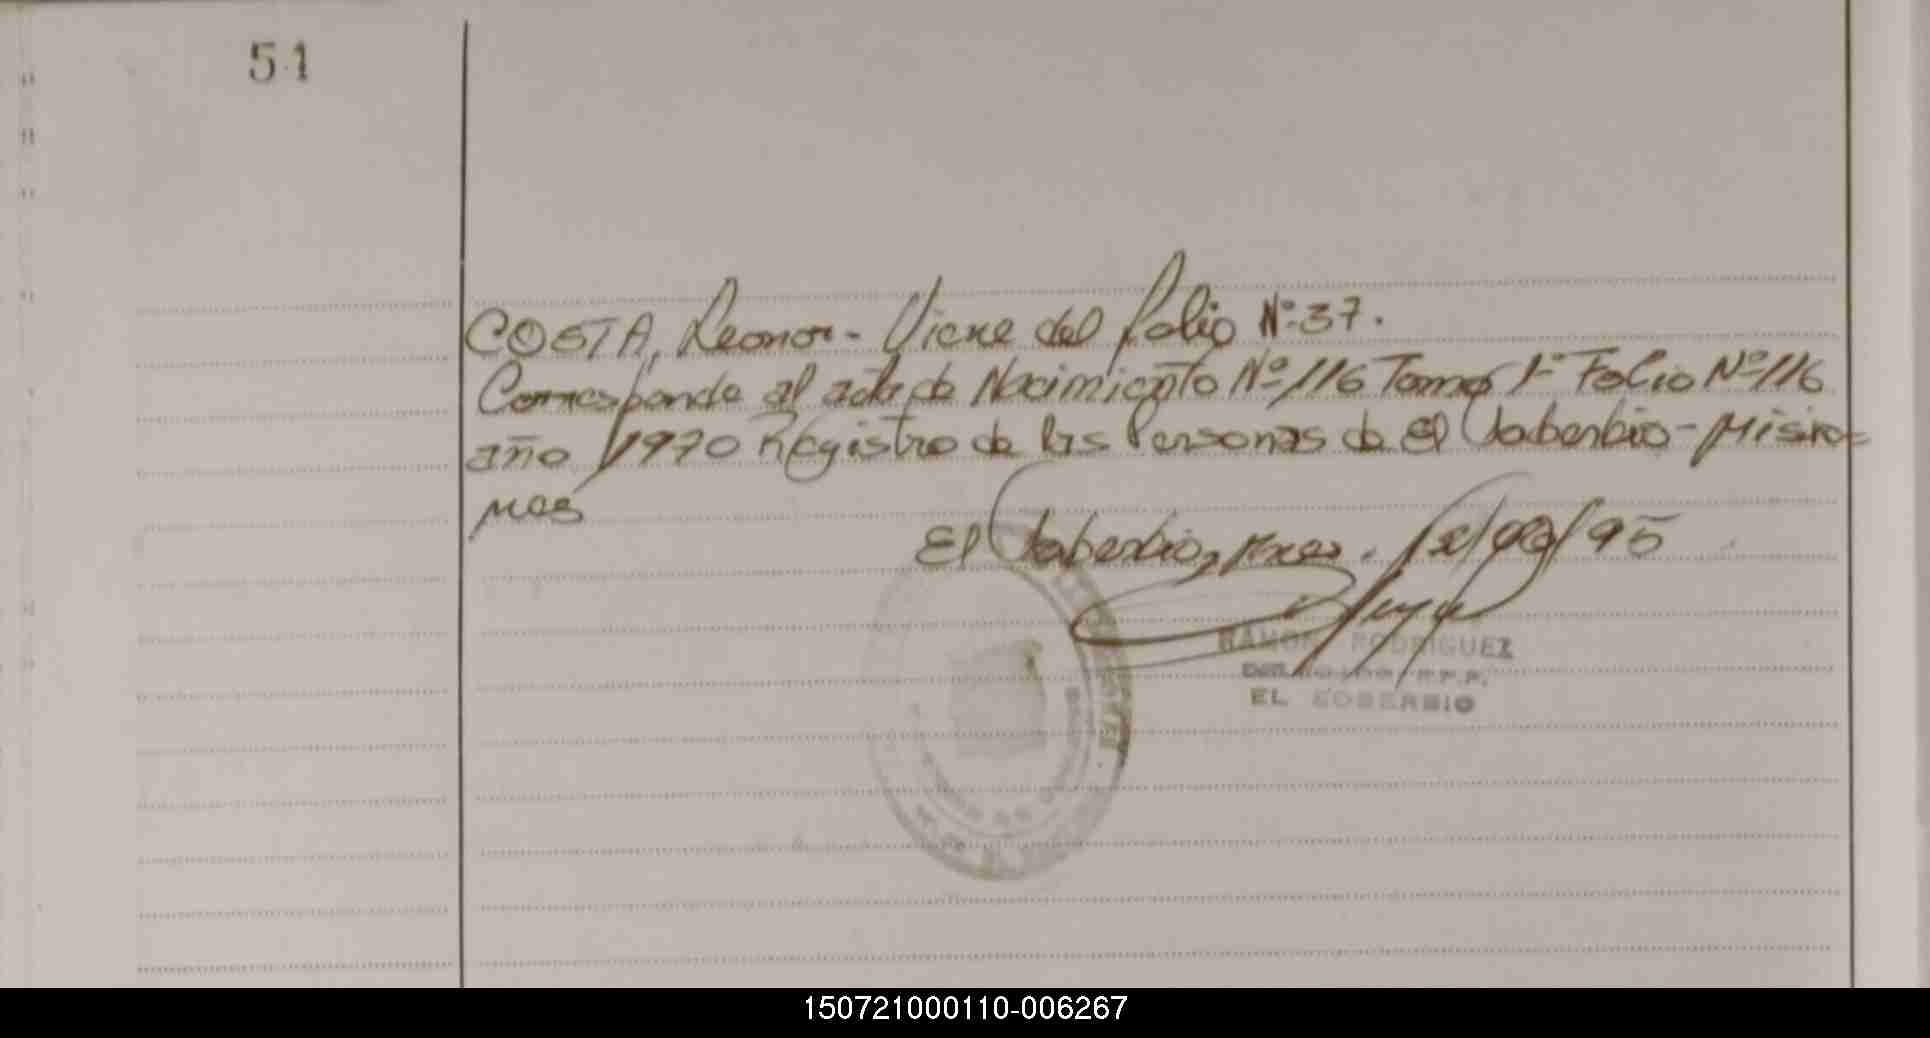 51
COSTA, Leonor - Viene del folio Nº 37.
Corresponde al acta de Nacimiento Nº 116 Tomo 1º Folio Nº 116
año 1970 Registro de las Personas de El Soberbio - Misio=
nes
El Soberbio, Mnes. /95
RAMON RODRIGUEZ
EL SOBERBIO
150721000110-006267